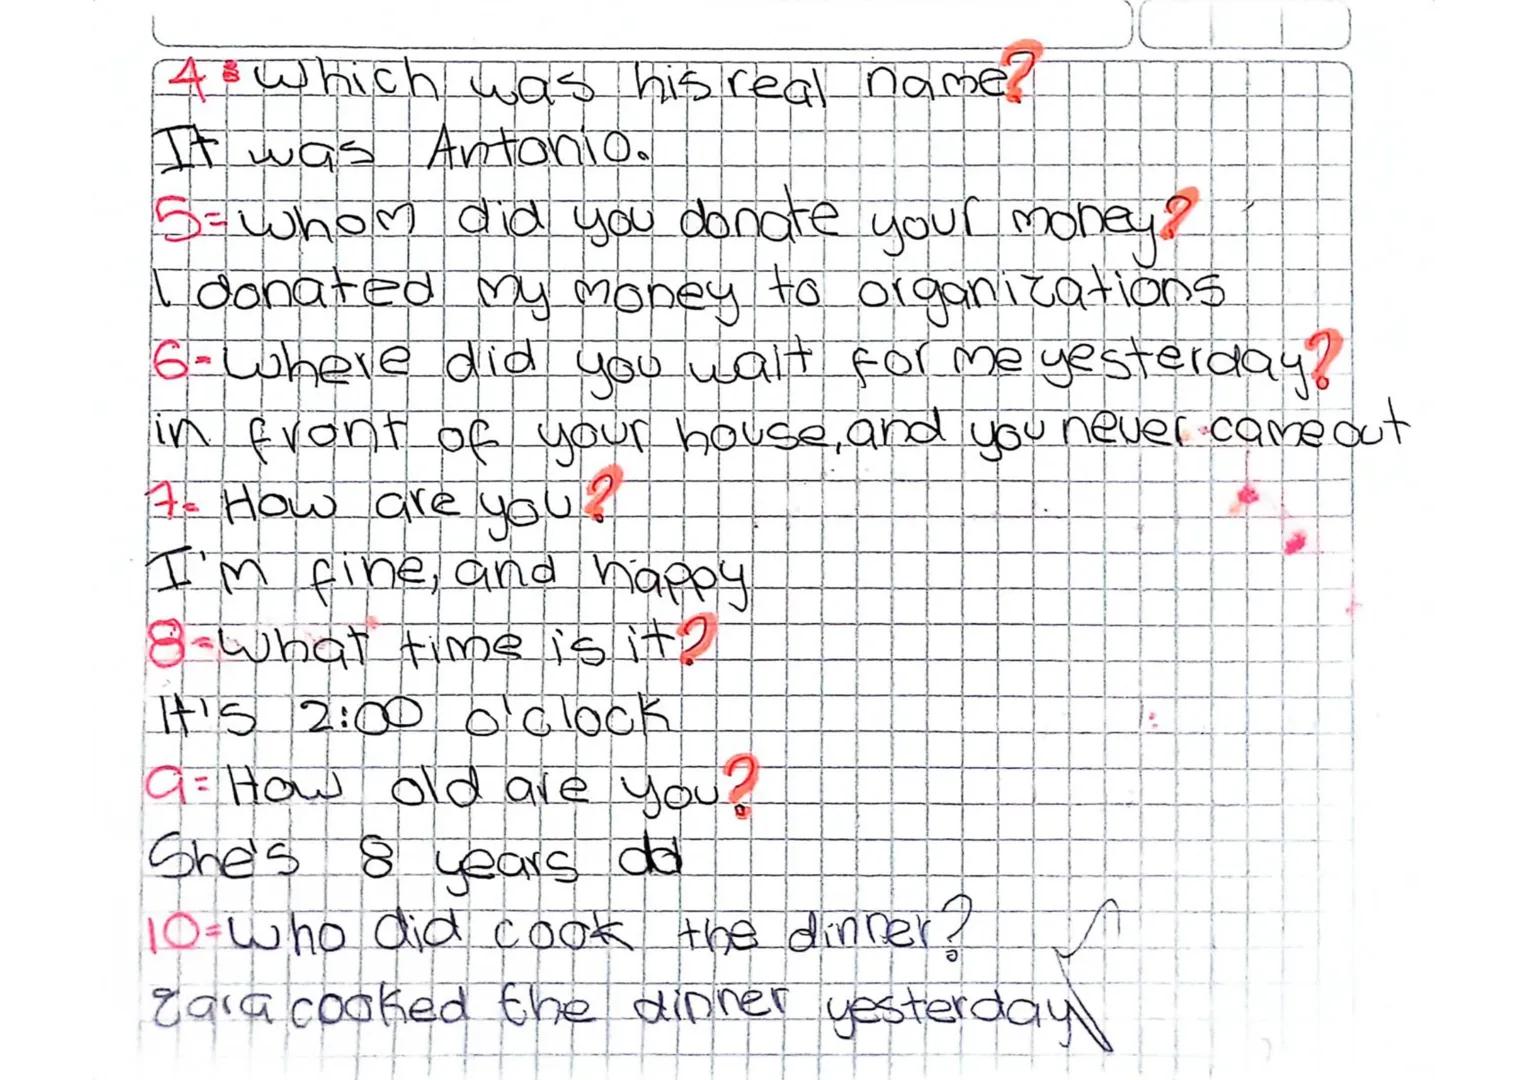 4= Which was his real name?
It was Antonio.
5= Whom did you donate your money?
I donated my money to organizations
6- Where did you wait for me yesterday?
in front of your house, and you never came out
7- How are you?
I'm fine, and happy
8- What time is it?
It's 2:00 o'clock
9= How old are you?
She's 8 years old
10= Who did cook the dinner?
Zara cooked the dinner yesterday